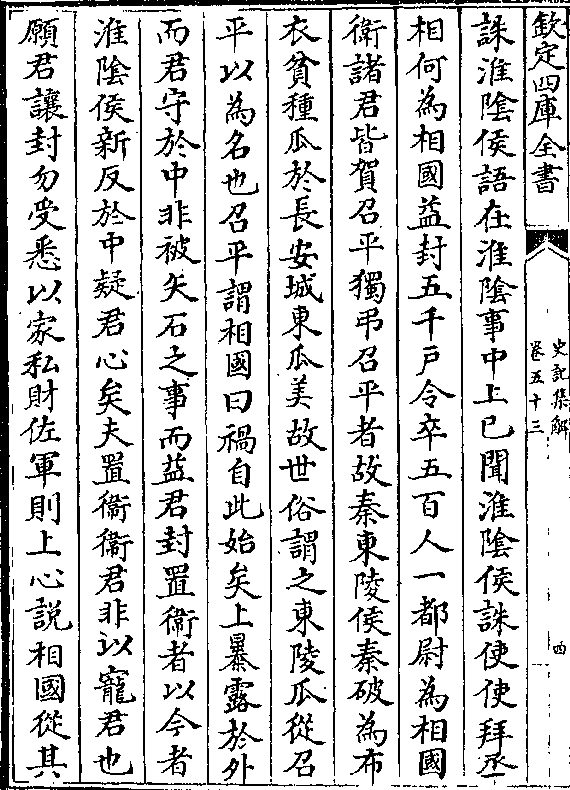 欽定四庫全書
史記集解
卷五十三
四
誅淮陰侯語在淮陰事中上已聞淮陰侯誅使使拜丞
相何為相國益封五千戸令卒五百人一都尉為相國
衛諸君皆賀召平獨弔召平者故秦東陵侯秦破為布
衣貧種瓜於長安城東瓜美故世俗謂之東陵瓜從召
平以為名也召平謂相國曰禍自此始矣上暴露於外
而君守於中非被矢石之事而益君封置衛者以今者
淮陰侯新反於中疑君心矣夫置衛衛君非以寵君也
願君讓封勿受悉以家私財佐軍則上心説相國從其